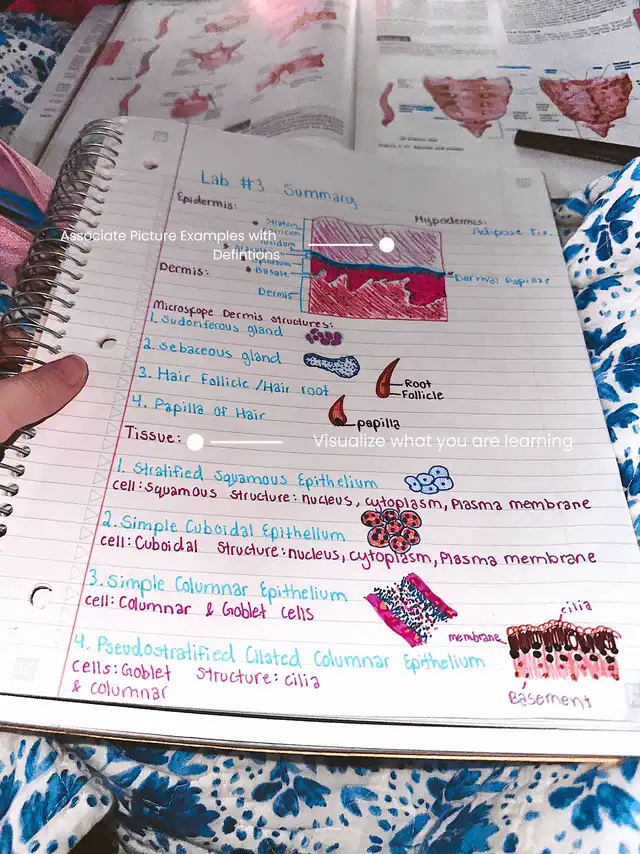 Lab #3 Summary
Epidermis:
Hypodermis:
Stratum
Adipose Tis.
Associate Picture Examples with
Defintions
Basale
Dermal Papillae
Dermis:
Dermis
Microscope Dermis structures:
1. Sudoriferous gland
2. sebaceous gland
3. Hair Follicle / Hair root
Root
Follicle
4. Papilla of Hair
papilla
Tissue:
Visualize what you are learning
1. Stratified Squamous Epithelium
cell: Squamous Structure: nucleus, cytoplasm, Plasma membrane
2. Simple Cuboidal Epithelium
cell: Cuboidal Structure: nucleus, cytoplasm, Plasma membrane
3. Simple Columnar Epithelium
cell: Columnar & Goblet cells
cilia
membrane
4. Pseudostratified Cilated Columnar Epithelium
cells: Goblet Structure: cilia
& columnar
Basement